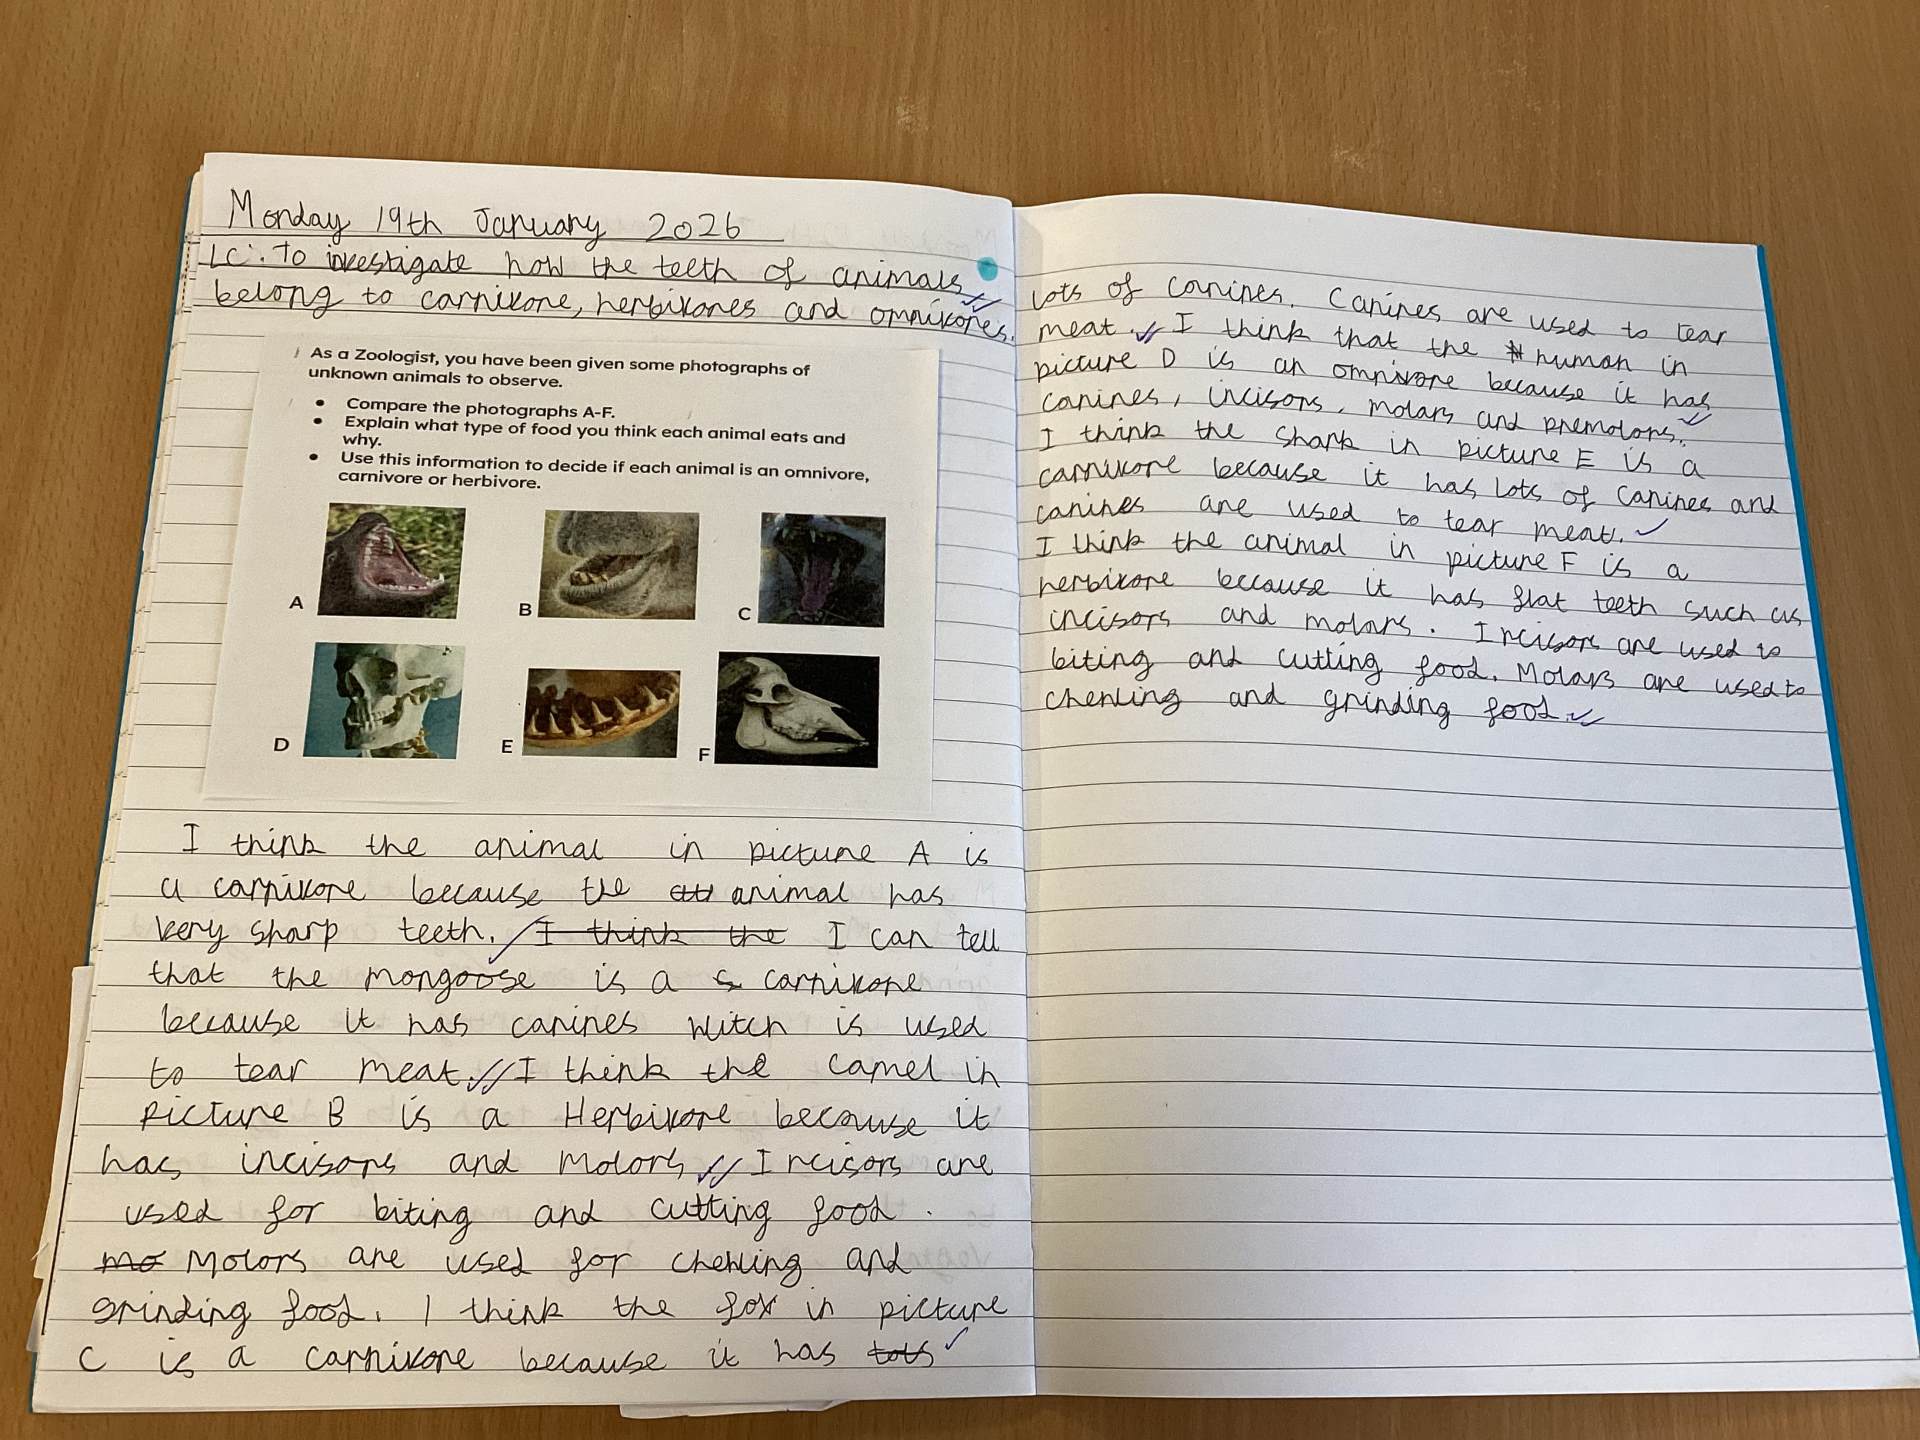 Monday 19th January 2026
LC: To investigate how the teeth of animals
belong to carnivore, herbivores and omnivores.
As a Zoologist, you have been given some photographs of
unknown animals to observe.
• Compare the photographs A-F.
• Explain what type of food you think each animal eats and
why.
• Use this information to decide if each animal is an omnivore,
carnivore or herbivore.
A
B
C
D
E
F
I think the animal in picture A is
a carnivore because the animal has
very sharp teeth. I think the I can tell
that the mongoose is a carnivore
because it has canines witch is used
to tear meat. I think the camel in
picture B is a Herbivore because it
has incisors and molors. Incisors are
used for biting and cutting food.
mo Molors are used for chewing and
grinding food. I think the fox in picture
C is a carnivore because it has lots
lots of canines. Canines are used to tear
meat. I think that the human in
picture D is an omnivore because it has
canines, incisors, molars and premolars.
I think the shark in picture E is a
carnivore because it has lots of canines and
canines are used to tear meat.
I think the animal in picture F is a
herbivore because it has flat teeth such as
incisors and molars. Incisors are used to
biting and cutting food. Molars are used to
chewing and grinding food.